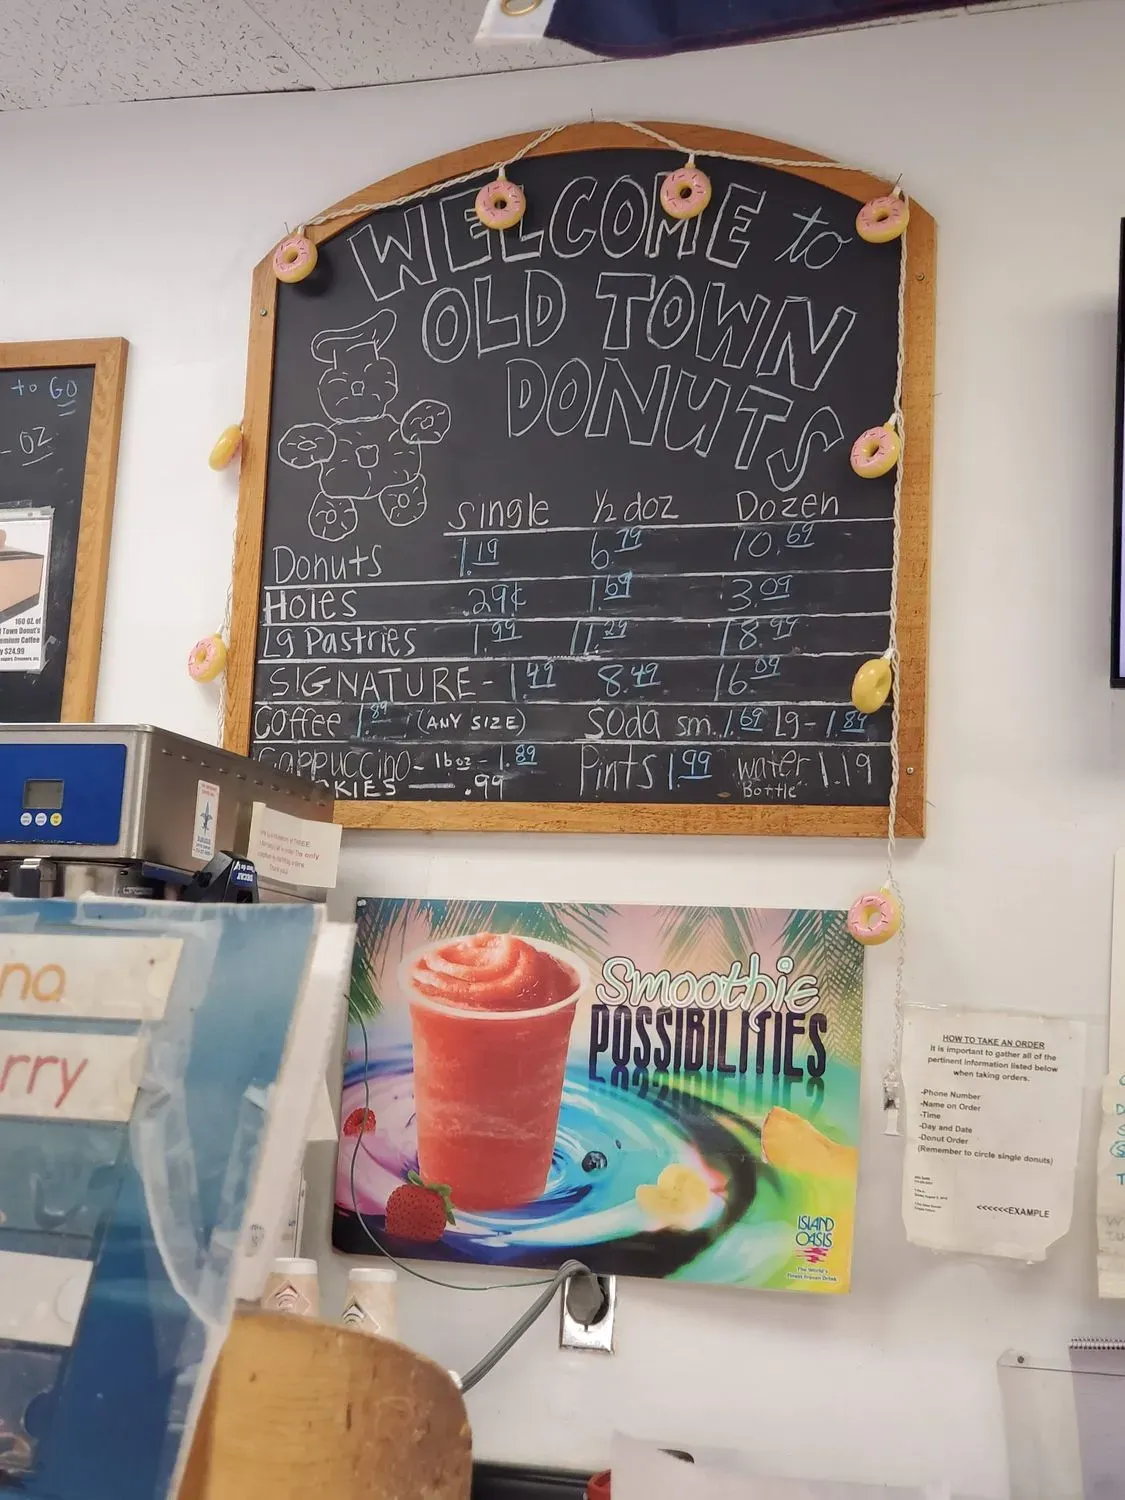 WELCOME to
OLD TOWN
DONUTS
single ½ doz Dozen
Donuts 1.19 6.79 10.69
Holes .29¢ 1.69 3.09
Lg Pastries 1.99 11.29 18.99
SIGNATURE - 1.49 8.49 16.09
Coffee 1.89 (ANY SIZE) Soda sm. 1.69 Lg - 1.89
Cappuccino - 16oz - 1.89 Pints 1.99 water 1.19
Bottle
KIES .99
to GO
OZ
160 OZ. of
Town Donut's
emium Coffee
$24.99
only
na
rry
Smoothie
POSSIBILITIES
ISLAND
OASIS
The World's
Finest Frozen Drink
HOW TO TAKE AN ORDER
It is important to gather all of the
pertinent information listed below
when taking orders.
-Phone Number
-Name on Order
-Time
-Day and Date
-Donut Order
(Remember to circle single donuts)
<<<<<<EXAMPLE